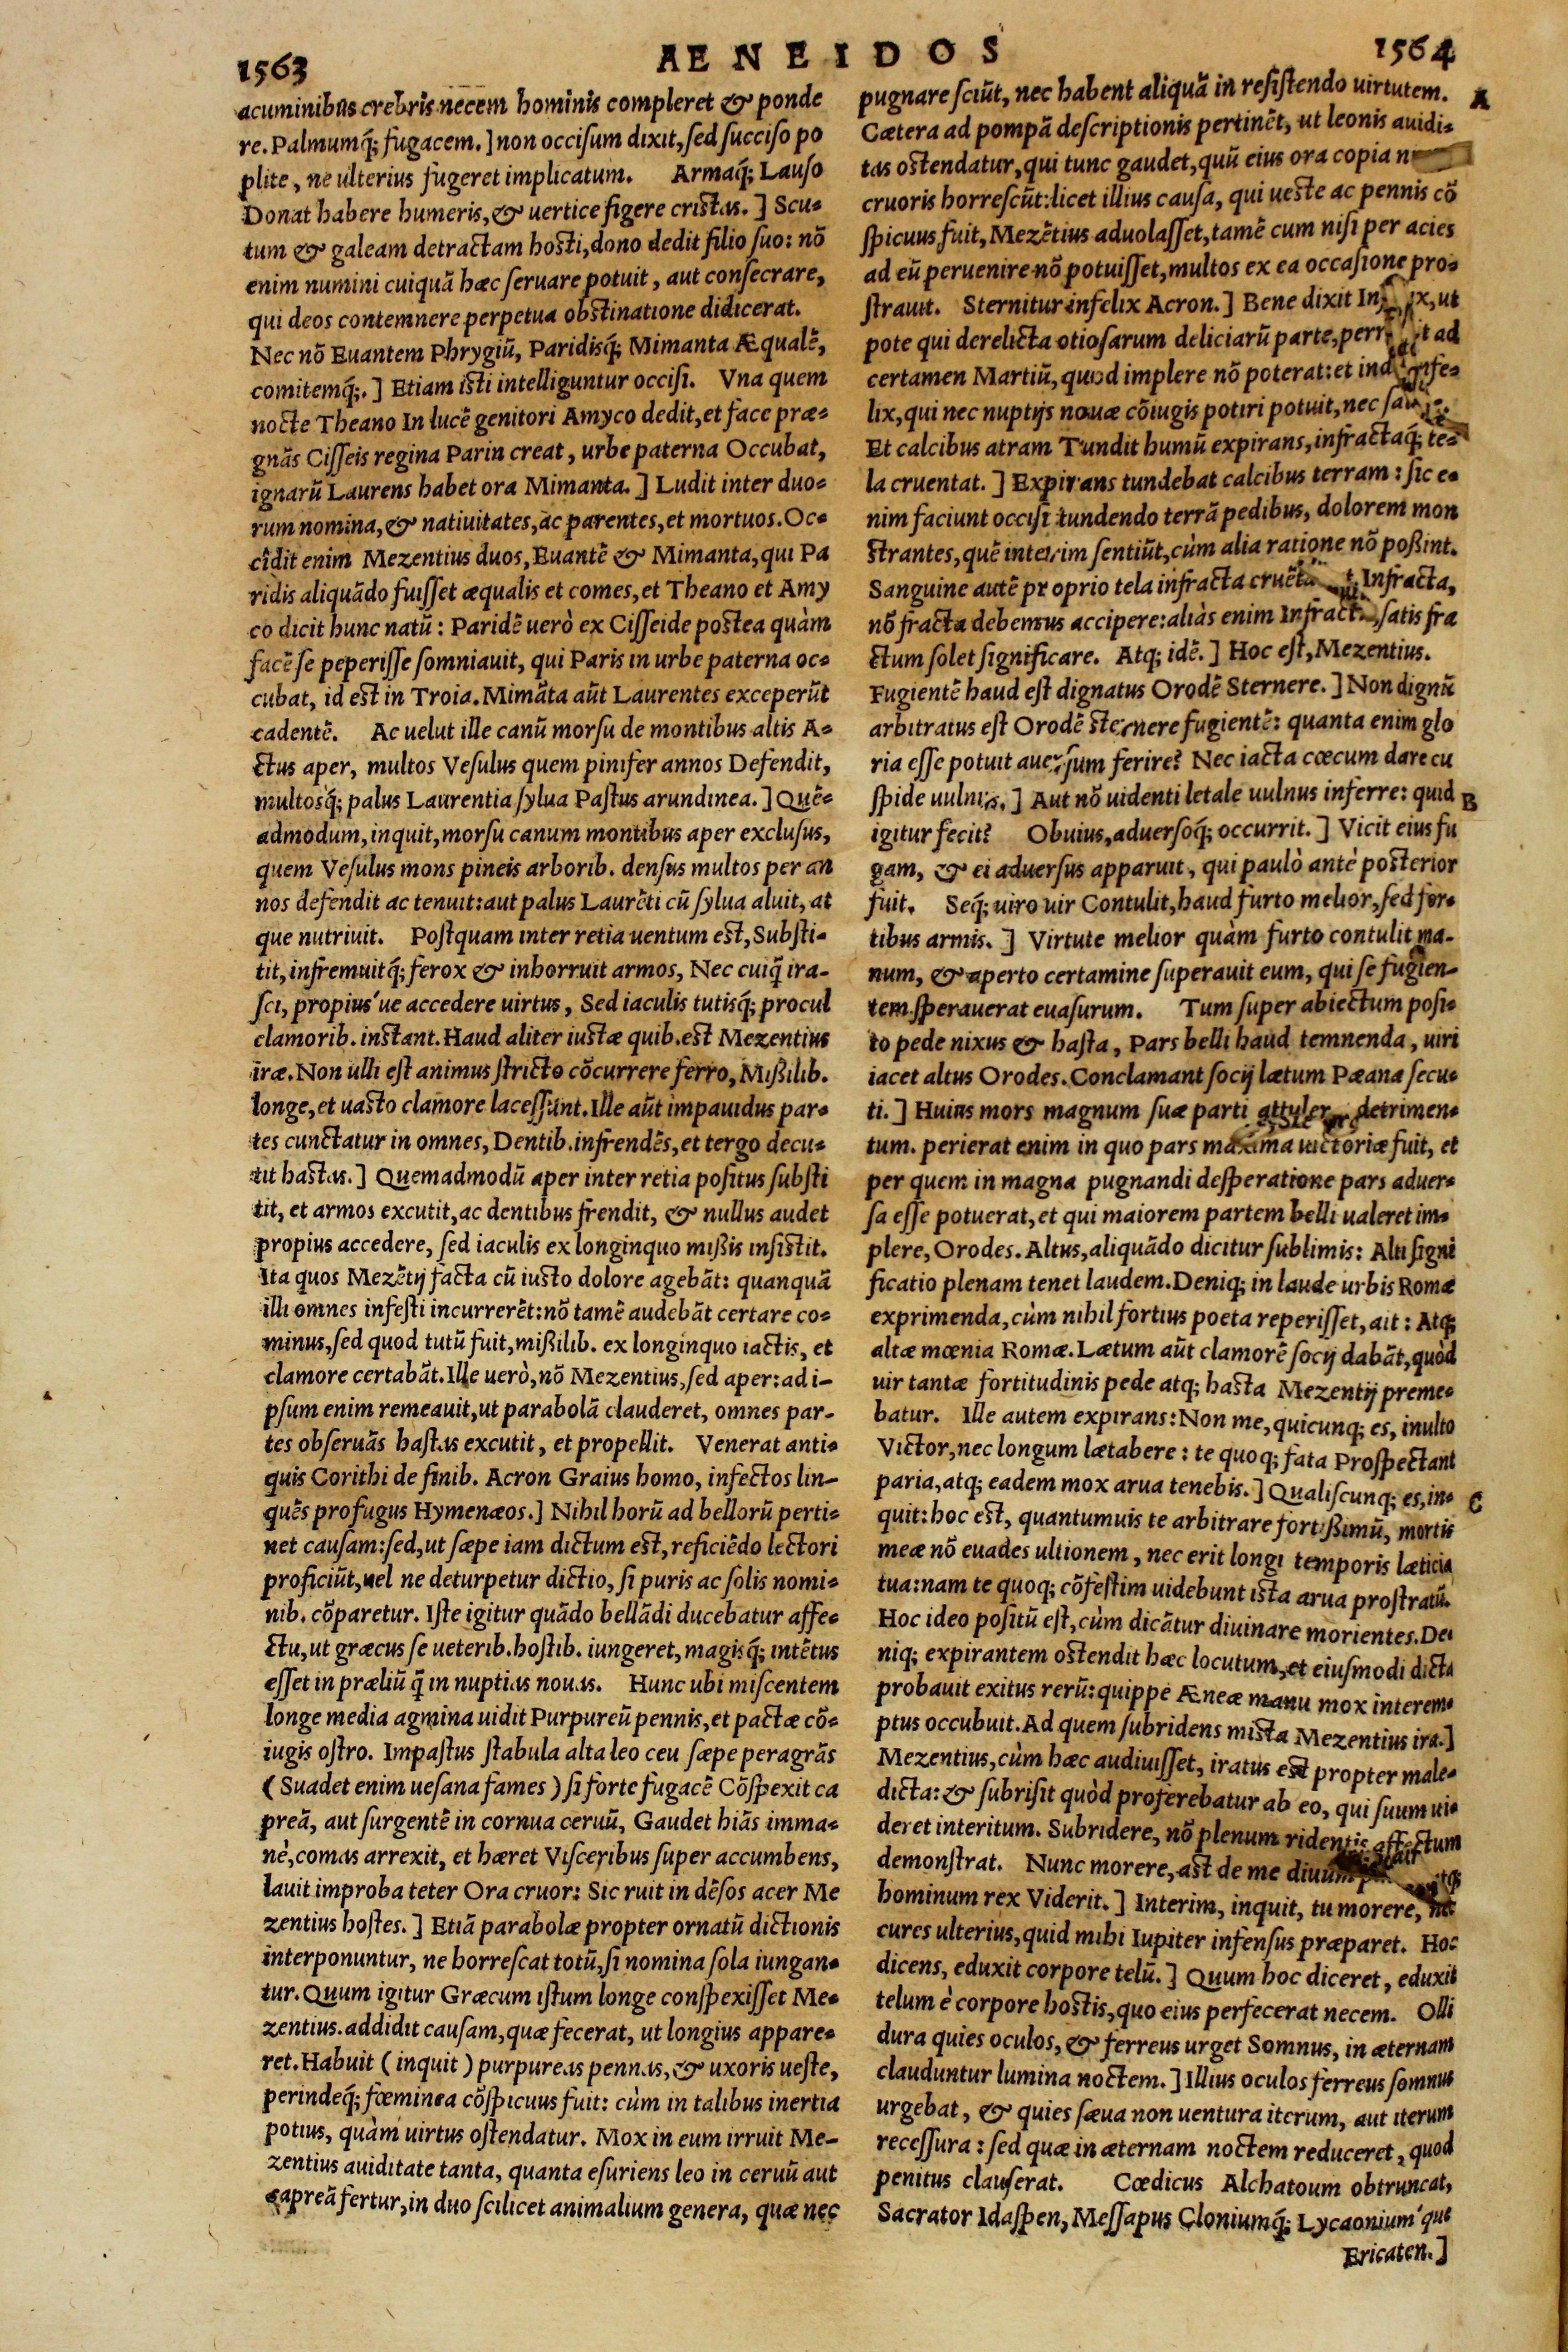 1563
AENEIDOS
1564
acuminibus crebris necem hominis compleret & ponde
re. Palmumq́; fugacem.] non occisum dixit, sed succiso po
plite, ne ulterius fugeret implicatum. Armaq́; Lauso
Donat habere humeris, & uertice figere cristas.] Scu-
tum & galeam detractam hosti, dono dedit filio suo: nõ
enim numini cuiquã hæc seruare potuit, aut consecrare,
qui deos contemnere perpetua obstinatione didicerat.
Nec nõ Euantem Phrygiũ, Paridisq́; Mimanta Æqualẽ,
comitemq́;.] Etiam isti intelliguntur occisi. Vna quem
nocte Theano In lucẽ genitori Amyco dedit, et face præ-
gnãs Cisseis regina Parin creat, urbe paterna Occubat,
ignarũ Laurens habet ora Mimanta.] Ludit inter duo-
rum nomina, & natiuitates, ac parentes, et mortuos. Oc-
cîdit enim Mezentius duos, Euantẽ & Mimanta, qui Pa
ridis aliquãdo fuisset æqualis et comes, et Theano et Amy
co dicit hunc natũ: Paridẽ uerò ex Cisseide postea quàm
facẽ se peperisse somniauit, qui Paris in urbe paterna oc-
cubat, id est in Troia. Mimãta aũt Laurentes exceperũt
cadentẽ. Ac uelut ille canũ morsu de montibus altis A-
ctus aper, multos Vesulus quem pinifer annos Defendit,
multosq́; palus Laurentia sylua Pastus arundinea.] Quẽ-
admodum, inquit, morsu canum montibus aper exclusus,
quem Vesulus mons pineis arborib. densus multos per an
nos defendit ac tenuit: aut palus Laurẽti cũ sylua aluit, at
que nutriuit. Postquam inter retia uentum est, Substi-
tit, infremuitq́; ferox & inhorruit armos, Nec cuiq̃ ira-
sci, propius´ue accedere uirtus, Sed iaculis tutisq́; procul
clamorib. instant. Haud aliter iustæ quib. est Mezentius
iræ. Non ulli est animus stricto cõcurrere ferro, Mißilib.
longe, et uasto clamore lacessunt. Ille aũt impauidus par-
tes cunctatur in omnes, Dentib. infrendẽs, et tergo decu-
tit hastas.] Quemadmodũ aper inter retia positus substi
tit, et armos excutit, ac dentibus frendit, & nullus audet
propius accedere, sed iaculis ex longinquo mißis insistit.
Ita quos Mezẽtij facta cũ iusto dolore agebãt: quanquã
illi omnes infesti incurrerẽt: nõ tamẽ audebãt certare co-
minus, sed quod tutũ fuit, mißilib. ex longinquo iactis, et
clamore certabãt. Ille uerò, nõ Mezentius, sed aper: ad i-
psum enim remeauit, ut parabolã clauderet, omnes par-
tes obseruãs hastas excutit, et propellit. Venerat anti-
quis Corithi de finib. Acron Graius homo, infectos lin-
quẽs profugus Hymenæos.] Nihil horũ ad bellorũ perti-
net causam: sed, ut sæpe iam dictum est, reficiẽdo lectori
proficiũt, uel ne deturpetur dictio, si puris ac solis nomi-
nib. cõparetur. Iste igitur quãdo bellãdi ducebatur affe-
ctu, ut græcus se ueterib. hostib. iungeret, magisq́; intẽtus
esset in præliũ q̃ in nuptias nouas. Hunc ubi miscentem
longe media agmina uidit Purpureũ pennis, et pactæ cõ-
iugis ostro. Impastus stabula alta leo ceu sæpe peragrãs
(Suadet enim uesana fames) si forte fugacẽ Cõspexit ca
preã, aut surgentẽ in cornua ceruũ, Gaudet hiãs imma-
nè, comas arrexit, et hæret Visceribus super accumbens,
lauit improba teter Ora cruor: Sic ruit in dẽsos acer Me
zentius hostes.] Etiã parabolæ propter ornatũ dictionis
interponuntur, ne horrescat totũ, si nomina sola iungan-
tur. Quum igitur Græcum istum longe conspexisset Me-
zentius. addidit causam, quæ fecerat, ut longius appare-
ret. Habuit (inquit) purpureas pennas, & uxoris ueste,
perindeq́; fœminea cõspicuus fuit: cùm in talibus inertia
potius, quàm uirtus ostendatur. Mox in eum irruit Me-
zentius auiditate tanta, quanta esuriens leo in ceruũ aut
capreã fertur, in duo scilicet animalium genera, quæ nec
pugnare sciũt, nec habent aliquã in resistendo uirtutem.
A
Cætera ad pompã descriptionis pertinẽt, ut leonis auidi-
tas ostendatur, qui tunc gaudet, quũ eius ora copia
cruoris horrescũt: licet illius causa, qui ueste ac pennis cõ
spicuus fuit, Mezẽtius aduolasset, tamẽ cum nisi per acies
ad eũ peruenire nõ potuisset, multos ex ea occasione pro-
strauit. Sternitur infelix Acron.] Bene dixit ut
pote qui derelicta otiosarum deliciarũ parte, ad
certamen Martiũ, quod implere nõ poterat: et infe-
lix, qui nec nuptijs nouæ cõiugis potiri potuit, nec
Et calcibus atram Tundit humũ expirans, infractaq́; te-
la cruentat.] Expirans tundebat calcibus terram: sic e-
nim faciunt occisi tundendo terrã pedibus, dolorem mon
strantes, quẽ interim sentiũt, cùm alia ratione nõ poßint.
Sanguine autẽ proprio tela infracta Infracta,
nõ fracta debemus accipere: aliàs enim satis fra
ctum solet significare. Atq; idẽ.] Hoc est, Mezentius.
Fugientẽ haud est dignatus Orodẽ Sternere.] Non dignũ
arbitratus est Orodẽ sternere fugientẽ: quanta enim glo
ria esse potuit auersum ferire? Nec iacta cœcum dare cu
spide uulnus.] Aut nõ uidenti letale uulnus inferre: quid
B
igitur fecit? Obuius, aduersoq́; occurrit.] Vicit eius fu
gam, & ei aduersus apparuit, qui paulò antè posterior
fuit. Seq́; uiro uir Contulit, haud furto melior, sed for-
tibus armis.] Virtute melior quàm furto contulit ma-
num, & aperto certamine superauit eum, qui se fugien-
tem sperauerat euasurum. Tum super abiectum posi-
to pede nixus & hasta, Pars belli haud temnenda, uiri
iacet altus Orodes. Conclamant socij lætum Pæana secu-
ti.] Huius mors magnum suæ parti detrimen-
tum. perierat enim in quo pars maxima uictoriæ fuit, et
per quem in magna pugnandi desperatione pars aduer-
sa esse potuerat, et qui maiorem partem belli ualeret im-
plere, Orodes. Altus, aliquãdo dicitur sublimis: Alti signi
ficatio plenam tenet laudem. Deniq; in laude urbis Romæ
exprimenda, cùm nihil fortius poeta reperisset, ait: Atq;
altæ mœnia Romæ. Lætum aũt clamorẽ socij dabãt, quòd
uir tantæ fortitudinis pede atq; hasta Mezentij preme-
batur. Ille autem expirans: Non me, quicunq; es, inulto
Victor, nec longum lætabere: te quoq; fata Prospectant
paria, atq; eadem mox arua tenebis.] Qualiscunq; es, in-
C
quit: hoc est, quantumuis te arbitrare fortißimũ, mortis
meæ nõ euades ultionem, nec erit longi temporis læticia
tua: nam te quoq; cõfestim uidebunt ista arua prostratũ.
Hoc ideo positũ est, cùm dicãtur diuinare morientes. De-
niq; expirantem ostendit hæc locutum, et eiusmodi dicta
probauit exitus rerũ: quippe Æneæ manu mox interem-
ptus occubuit. Ad quem subridens mista Mezentius ira.]
Mezentius, cùm hæc audiuisset, iratus est propter male-
dicta: & subrisit quòd proferebatur ab eo, qui suum ui-
deret interitum. Subridere, nõ plenum ridentis affectum
demonstrat. Nunc morere, ast de me diuum
hominum rex Viderit.] Interim, inquit, tu morere, nec
cures ulterius, quid mihi Iupiter infensus præparet. Hoc
dicens, eduxit corpore telũ.] Quum hoc diceret, eduxit
telum è corpore hostis, quo eius perfecerat necem. Olli
dura quies oculos, & ferreus urget Somnus, in æternam
clauduntur lumina noctem.] Illius oculos ferreus somnus
urgebat, & quies sæua non uentura iterum, aut iterum
recessura: sed quæ in æternam noctem reduceret, quod
penitus clauserat. Cœdicus Alchatoum obtruncat,
Sacrator Idaspen, Messapus Cloniumq́; Lycaonium´que
Ericaten.]